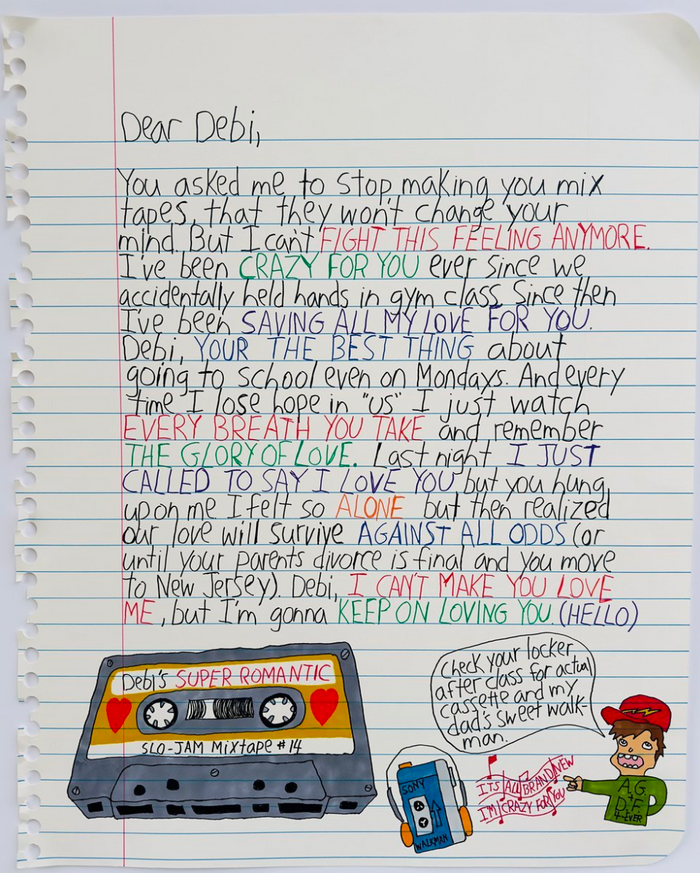 Dear Debi,
You asked me to stop making you mix
tapes, that they won't change your
mind. But I can't FIGHT THIS FEELING ANYMORE.
I've been CRAZY FOR YOU ever since we
accidentally held hands in gym class. Since then
I've been SAVING ALL MY LOVE FOR YOU.
Debi, YOUR THE BEST THING about
going to school even on Mondays. And every
time I lose hope in "us" I just watch
EVERY BREATH YOU TAKE and remember
THE GLORY OF LOVE. Last night I JUST
CALLED TO SAY I LOVE YOU but you hung
up on me I felt so ALONE but then realized
our love will survive AGAINST ALL ODDS (or
until your parents divorce is final and you move
to New Jersey). Debi, I CAN'T MAKE YOU LOVE
ME, but I'm gonna KEEP ON LOVING YOU. (HELLO)
Debi's SUPER ROMANTIC
SLO-JAM MIXTAPE #14
Check your locker
after class for actual
cassette and my
dad's sweet walk-
man.
SONY
WALKMAN
ITS ALL BRAND NEW
I'M CRAZY FOR YOU
A.G.
D.F.
4-EVER